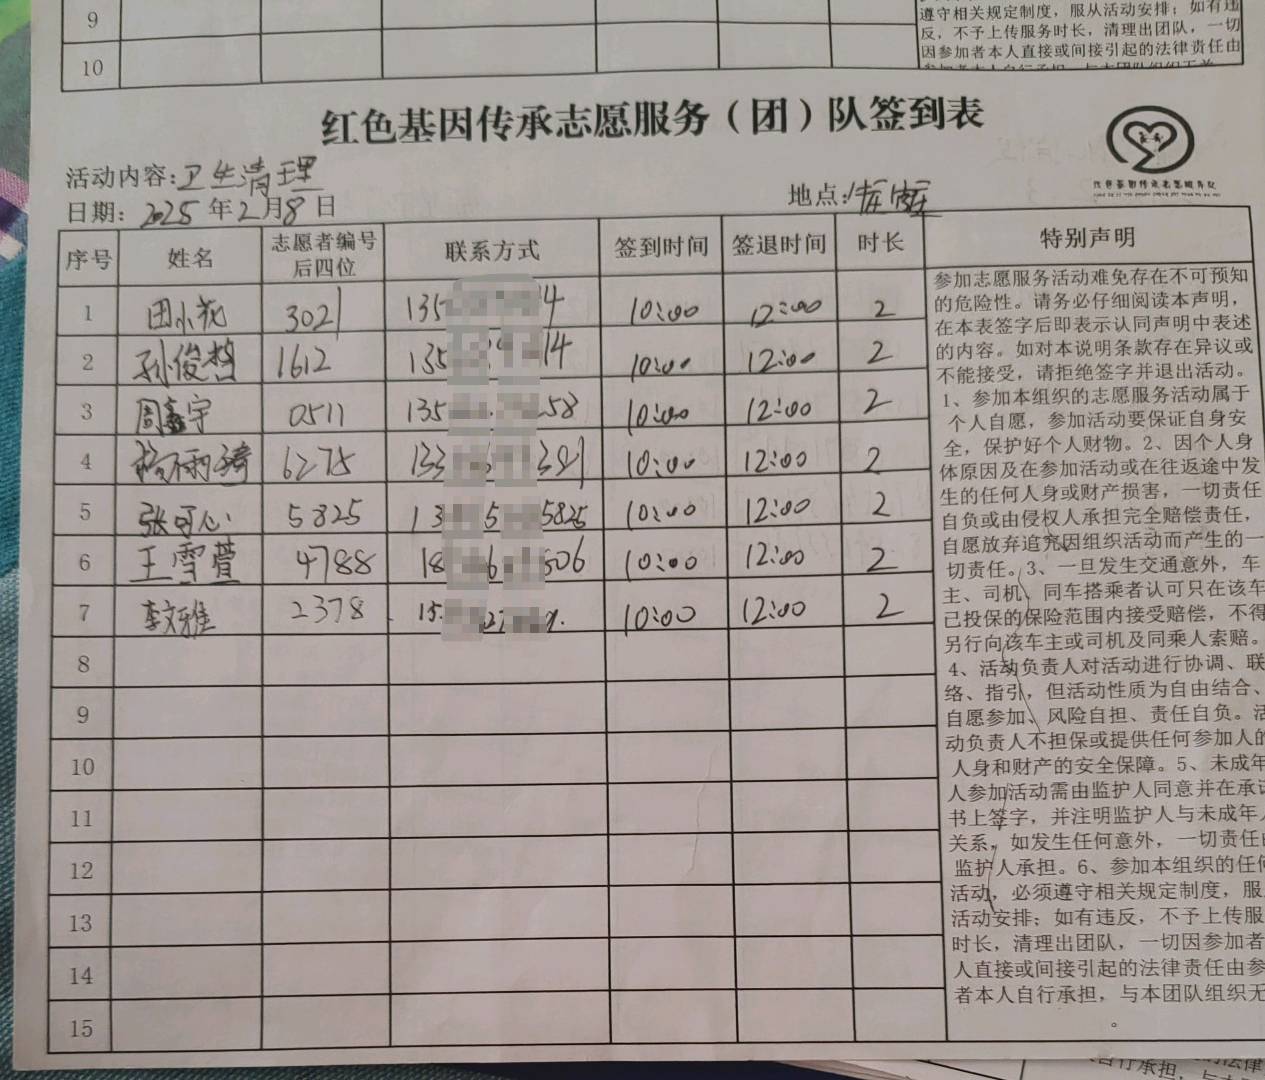 9
10
遵守相关规定制度，服从活动安排；如有违
反，不予上传服务时长，清理出团队，一切
因参加者本人直接或间接引起的法律责任由
红色基因传承志愿服务（团）队签到表
活动内容：卫生清理
日期：2025年2月8日
地点：
红色基因传承志愿服务队
序号 姓名 志愿者编号后四位 联系方式 签到时间 签退时间 时长 特别声明
1 田小花 3021 135 4 10:00 12:00 2
2 孙俊哲 1612 135 14 10:00 12:00 2
3 周鑫宇 0511 135 58 10:00 12:00 2
4 杨雨琦 6275 133 391 10:00 12:00 2
5 张可心 5825 13 5 5825 10:00 12:00 2
6 王雪萱 4788 18 6 506 10:00 12:00 2
7 李文雅 2378 15 10:00 12:00 2
8
9
10
11
12
13
14
15
参加志愿服务活动难免存在不可预知
的危险性。请务必仔细阅读本声明，
在本表签字后即表示认同声明中表述
的内容。如对本说明条款存在异议或
不能接受，请拒绝签字并退出活动。
1、参加本组织的志愿服务活动属于
个人自愿，参加活动要保证自身安
全，保护好个人财物。2、因个人身
体原因及在参加活动或在往返途中发
生的任何人身或财产损害，一切责任
自负或由侵权人承担完全赔偿责任，
自愿放弃追究因组织活动而产生的一
切责任。3、一旦发生交通意外，车
主、司机、同车搭乘者认可只在该车
已投保的保险范围内接受赔偿，不得
另行向该车主或司机及同乘人索赔。
4、活动负责人对活动进行协调、联
络、指引，但活动性质为自由结合、
自愿参加、风险自担、责任自负。活
动负责人不担保或提供任何参加人的
人身和财产的安全保障。5、未成年
人参加活动需由监护人同意并在承诺
书上签字，并注明监护人与未成年人
关系，如发生任何意外，一切责任由
监护人承担。6、参加本组织的任何
活动，必须遵守相关规定制度，服从
活动安排；如有违反，不予上传服务
时长，清理出团队，一切因参加者本
人直接或间接引起的法律责任由参加
者本人自行承担，与本团队组织无关
。